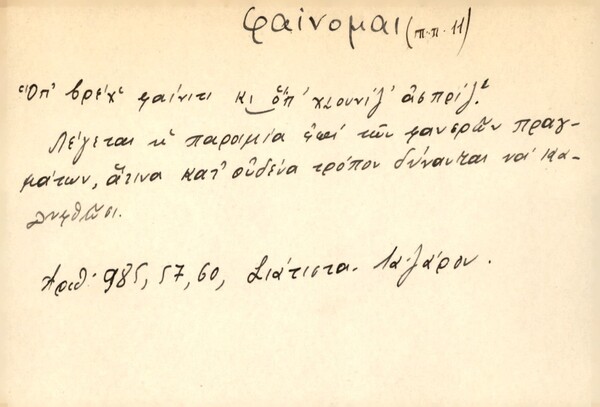 φαίνομαι (π.π. 11)
Ὅπ' βρέχ' φαίνιτι κι ὅπ' χιουνίζ' ἀσπρίζ'.
Λέγεται ἡ παροιμία ἐπί τῶν φανερῶν πραγ-
μάτων, ἅτινα κατ' οὐδένα τρόπον δύνανται νά κα-
λυφθῶσι.
Ἀριθ. 985, 57, 60, Σιάτιστα. Λαζάρου.